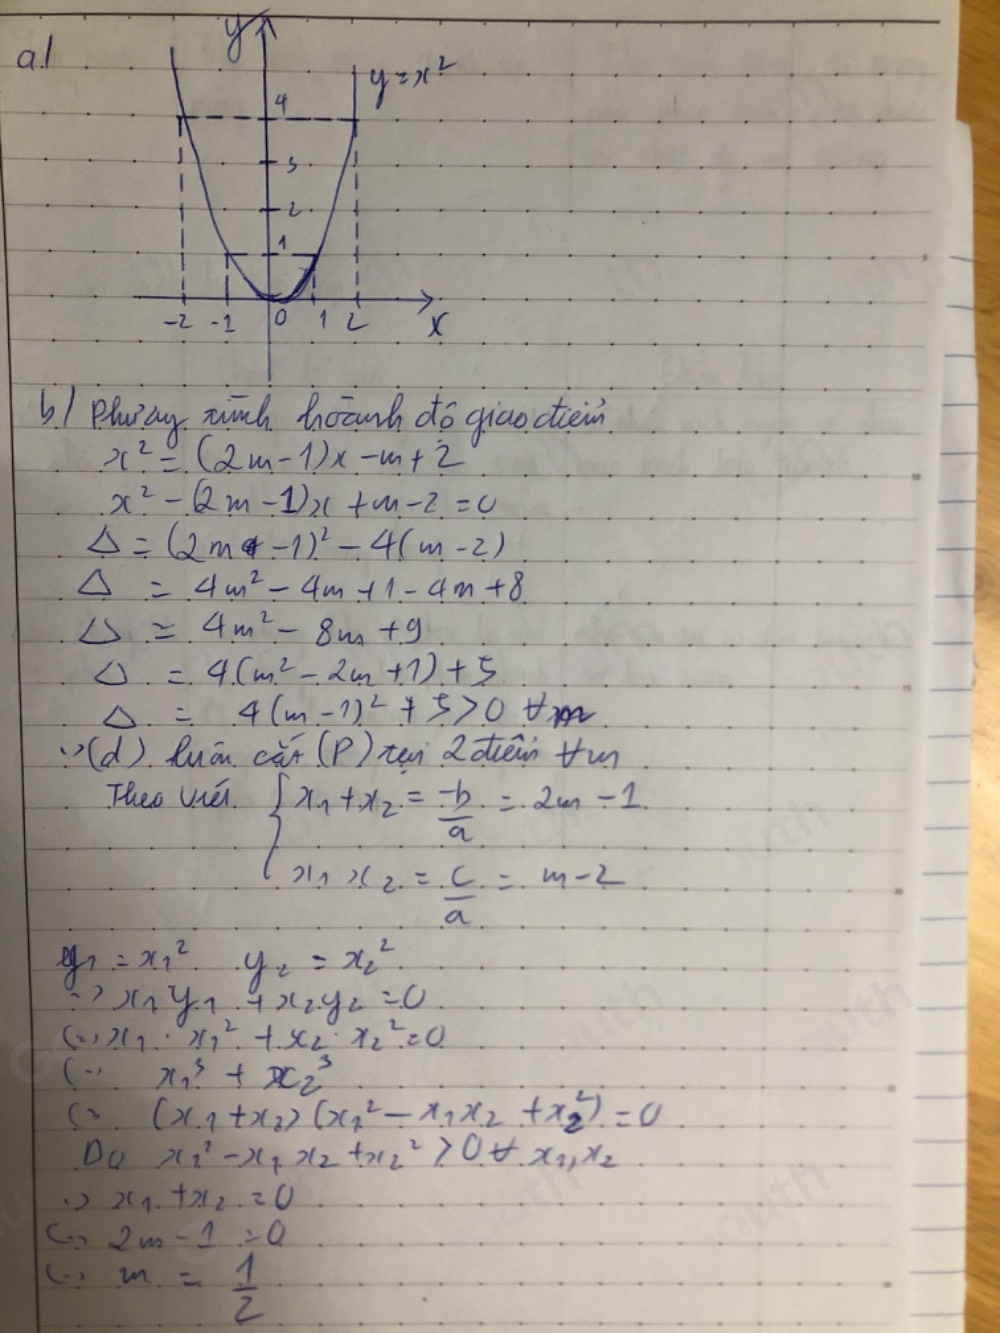 a.)
y
y = x²
4
3
2
1
-2 -1 0 1 2 x
b) Phương trình hoành độ giao điểm
x² = (2m-1)x - m + 2
x² - (2m-1)x + m - 2 = 0
Δ = (2m -1)² - 4(m-2)
Δ = 4m² - 4m + 1 - 4m + 8
Δ = 4m² - 8m + 9
Δ = 4(m² - 2m + 1) + 5
Δ = 4(m-1)² + 5 > 0 ∀m
=> (d) luôn cắt (P) tại 2 điểm ∀m
Theo Viét { x₁ + x₂ = -b/a = 2m - 1
x₁ x₂ = c/a = m - 2
y₁ = x₁² y₂ = x₂²
=> x₁y₁ + x₂y₂ = 0
<=> x₁ . x₁² + x₂ . x₂² = 0
<=> x₁³ + x₂³
<=> (x₁ + x₂)(x₁² - x₁x₂ + x₂²) = 0
Do x₁² - x₁x₂ + x₂² > 0 ∀ x₁, x₂
=> x₁ + x₂ = 0
<=> 2m - 1 = 0
<=> m = 1/2